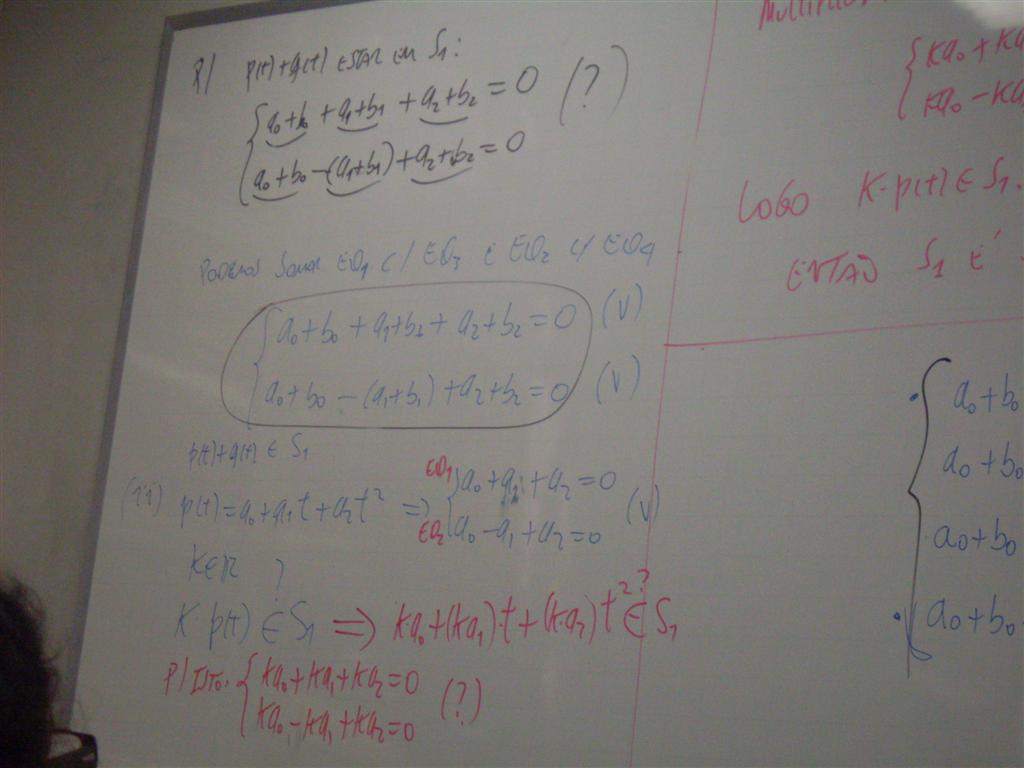 P/ p(t)+q(t) ESTAR EM S₁:
{a₀+b₀ + a₁+b₁ + a₂+b₂ = 0 (?)
{a₀+b₀ -(a₁+b₁) + a₂+b₂ = 0
PODEMOS SOMAR EQ₁ C/ EQ₃ E EQ₂ C/ EQ₄
{a₀+b₀ + a₁+b₁ + a₂+b₂ = 0 (V)
{a₀+b₀ - (a₁+b₁) + a₂+b₂ = 0 (V)
p(t)+q(t) ∈ S₁
(ii) p(t) = a₀+a₁t+a₂t² ⇒ EQ₁ {a₀+a₁+a₂ = 0 (V)
EQ₂ {a₀-a₁+a₂ = 0
K∈R ?
K·p(t) ∈ S₁ ⇒ k·a₀+(k·a₁)·t+(k·a₂)t² ∈? S₁
P/ ISTO: {ka₀+ka₁+ka₂=0 (?)
{ka₀-ka₁+ka₂=0
{ka₀ + ka
{ka₀ - ka
LOGO K·p(t) ∈ S₁.
ENTÃO S₁ É
{a₀+b₀
a₀+b₀
a₀+b₀
a₀+b₀